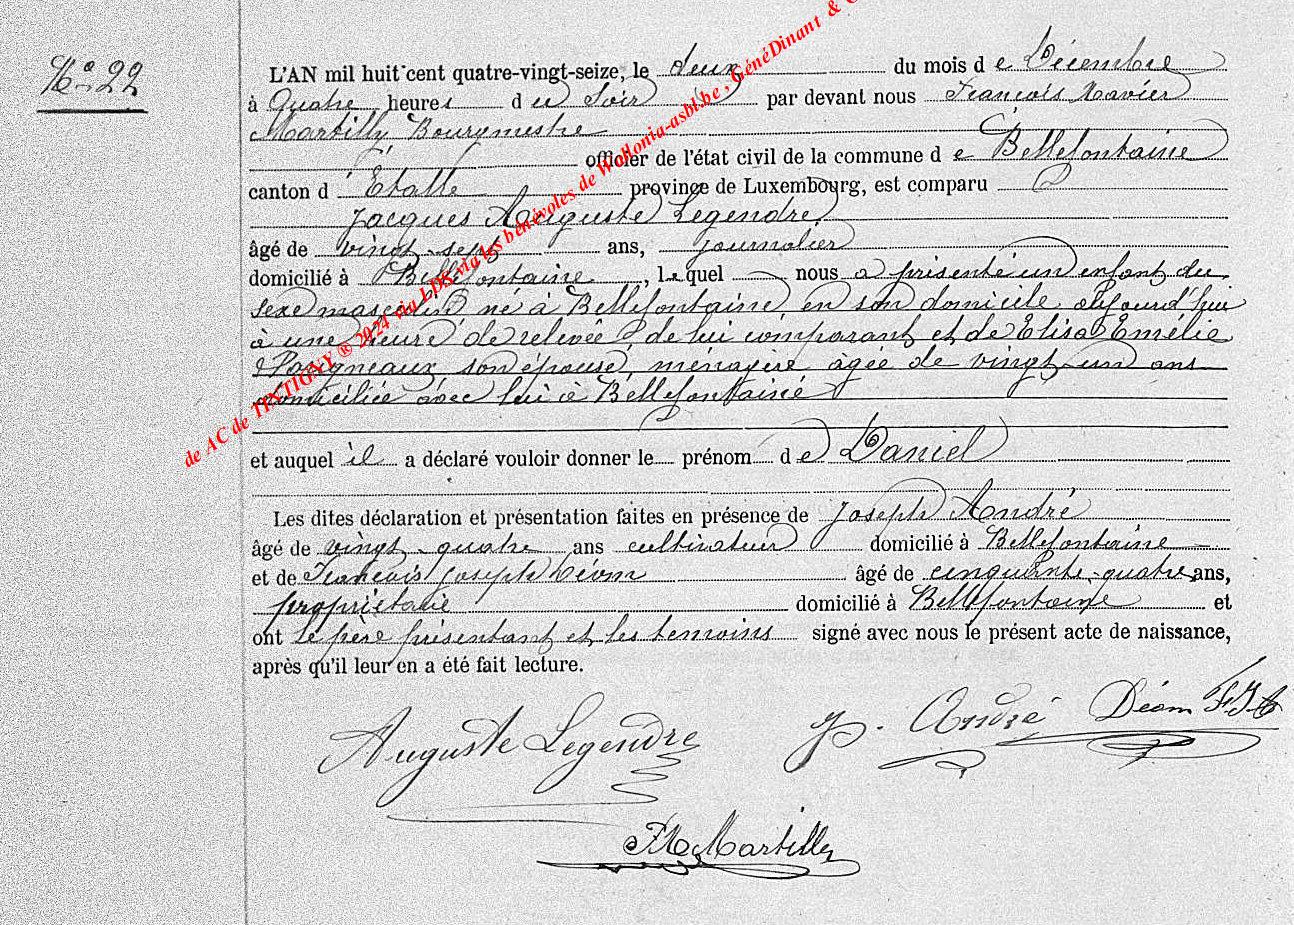 N° 22
L'AN mil huit cent quatre-vingt-seize, le deux du mois de Décembre
à Quatre heures du Soir par devant nous François Xavier
Martilly Bourgmestre
officier de l'état civil de la commune de Bellefontaine
canton d'Etalle province de Luxembourg, est comparu
Jacques Auguste Legendre
âgé de vingt-sept ans, journalier
domicilié à Bellefontaine, lequel nous a présenté un enfant du
sexe masculin, né à Bellefontaine, en son domicile aujourd'hui
à une heure de relevée, de lui comparant et de Elisa Emélie
son épouse, ménagère âgée de vingt-un ans
domiciliée avec lui à Bellefontaine
et auquel il a déclaré vouloir donner le prénom de Daniel
Les dites déclaration et présentation faites en présence de Joseph André
âgé de vingt-quatre ans cultivateur domicilié à Bellefontaine
et de François Joseph Déom âgé de cinquante-quatre ans,
propriétaire domicilié à Bellefontaine et
ont le père présentant et les temoins signé avec nous le présent acte de naissance,
après qu'il leur en a été fait lecture.
Auguste Legendre J. André Déom FJ
FX Martilly
de AC de TINTIGNY ® 2024 via LDS via les bénévoles de Wallonia-asbl.be, GénéDinant &